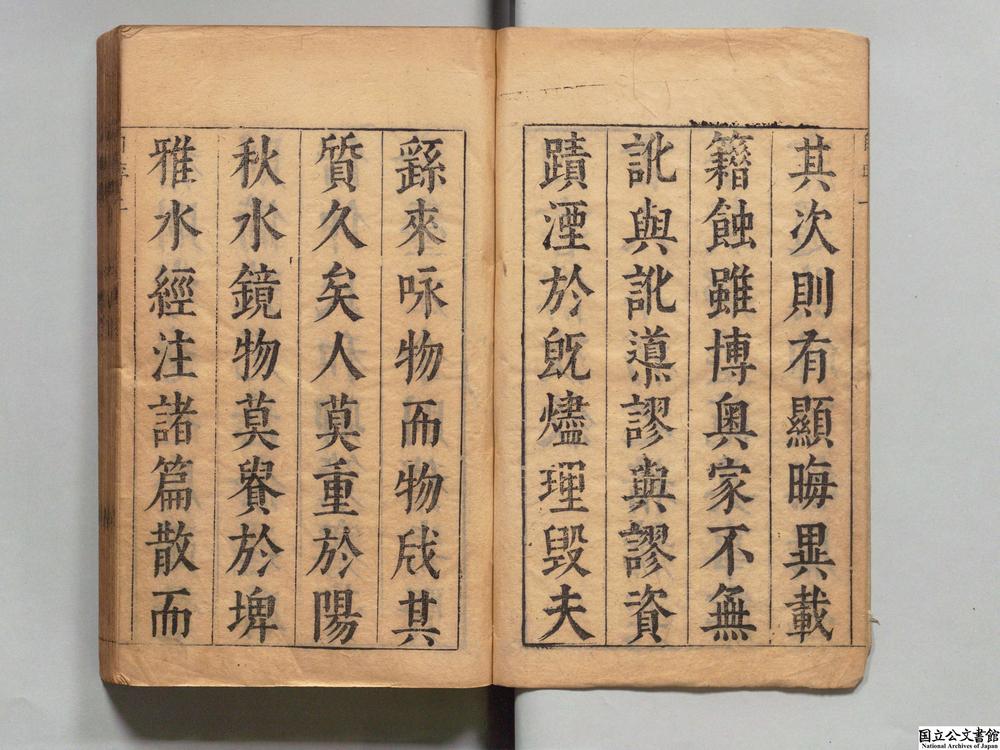 其次則有顯晦異載
籍蝕雖博奥家不無
訛與訛導謬與謬資
蹟湮於旣燼理毀夫
繇來咏物而物戕其
質久矣人莫重於陽
秋水鏡物莫賾於埤
雅水經注諸篇散而
国立公文書館
National Archives of Japan